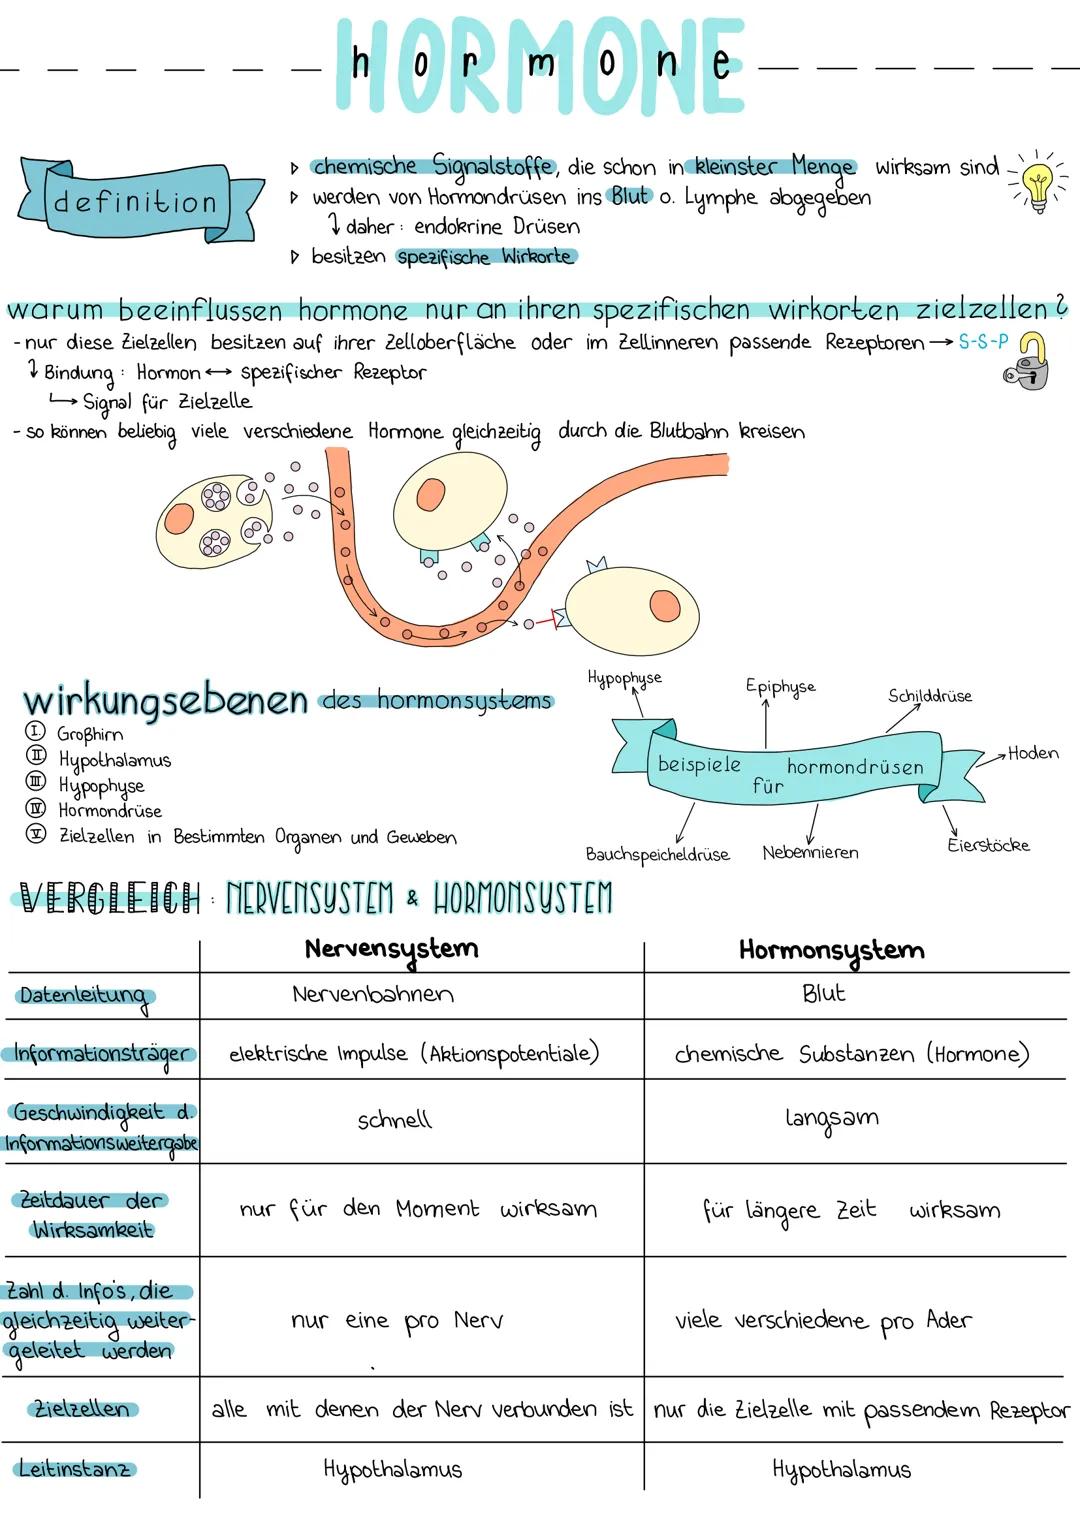 HORMONE
hormone
definition
▷ chemische Signalstoffe, die schon in kleinster Menge wirksam sind
▷ werden von Hormondrüsen ins Blut o. Lymphe abgegeben
↳ daher: endokrine Drüsen
▷ besitzen spezifische Wirkorte
warum beeinflussen hormone nur an ihren spezifischen wirkorten zielzellen?
- nur diese Zielzellen besitzen auf ihrer Zelloberfläche oder im Zellinneren passende Rezeptoren → S-S-P
↳ Bindung: Hormon ↔ spezifischer Rezeptor
↳ Signal für Zielzelle
- so können beliebig viele verschiedene Hormone gleichzeitig durch die Blutbahn kreisen
wirkungsebenen des hormonsystems
I. Großhirn
II Hypothalamus
III Hypophyse
IV Hormondrüse
V Zielzellen in Bestimmten Organen und Geweben
Hypophyse
Epiphyse
Schilddrüse
Hoden
beispiele für hormondrüsen
Bauchspeicheldrüse
Nebennieren
Eierstöcke
VERGLEICH: NERVENSYSTEM & HORMONSYSTEM
Nervensystem Hormonsystem
Datenleitung Nervenbahnen Blut
Informationsträger elektrische Impulse (Aktionspotentiale) chemische Substanzen (Hormone)
Geschwindigkeit d.
Informationsweitergabe schnell langsam
Zeitdauer der
Wirksamkeit nur für den Moment wirksam für längere Zeit wirksam
Zahl d. Info's, die
gleichzeitig weiter-
geleitet werden nur eine pro Nerv viele verschiedene pro Ader
Zielzellen alle mit denen der Nerv verbunden ist nur die Zielzelle mit passendem Rezeptor
Leitinstanz Hypothalamus Hypothalamus